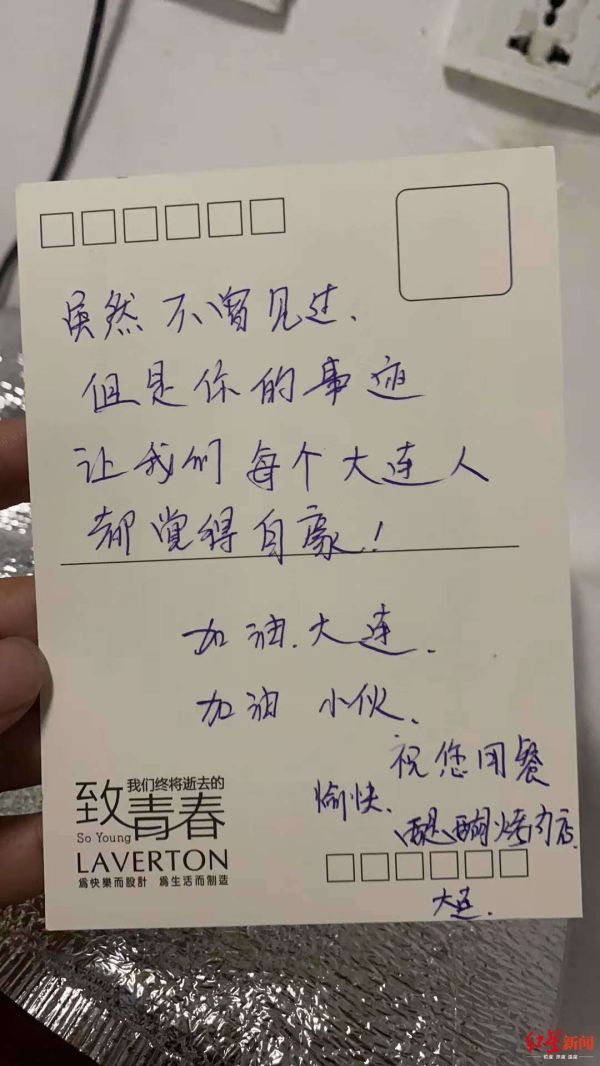 虽然不曾见过.
但是你的事迹
让我们每个大连人
都觉得自豪!
加油.大连.
加油 小伙.
祝您用餐
愉快.
醍醐烤肉店.
大连.
致我们终将逝去的
青春
So Young
LAVERTON
爲快樂而設計 爲生活而制造
红星新闻